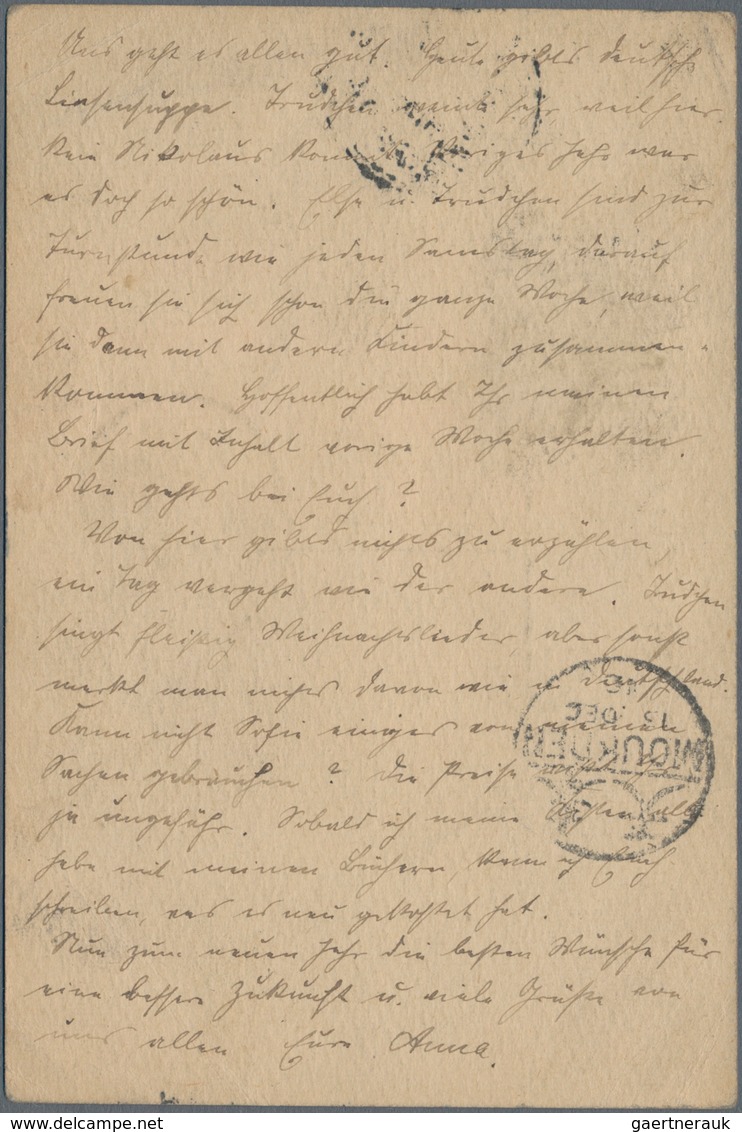 Uns geht es allen gut. Heute gibts deutsche
Linsensuppe. Trudchen weint sehr, weil hier
kein Nikolaus kommt. Voriges Jahr war
es doch so schön. Else u. Trudchen sind zur
Turnstunde wie jeden Samstag, darauf
freuen sie sich schon die ganze Woche, weil
sie dann mit andern Kindern zusammen-
kommen. Hoffentlich habt Ihr meinen
Brief mit Inhalt vorige Woche erhalten.
Wie gehts bei Euch?
Von hier gibts nichts zu erzählen,
ein Tag vergeht wie der andere. Trudchen
singt fleißig Weihnachtslieder, aber sonst
merkt man nichts davon wie in Deutschland.
Kann nicht Sofie einiges von meinen
Sachen gebrauchen? Die Preise wißt Ihr
ja ungefähr. Sobald ich meine Kisten alle
habe mit meinen Büchern, kann ich Euch
schreiben, was es neu gekostet hat.
Nun zum neuen Jahr die besten Wünsche für
eine bessere Zukunft u. viele Grüße von
uns allen Eure Anna.
MOUKDEN
13 DEC
gaertnerauk